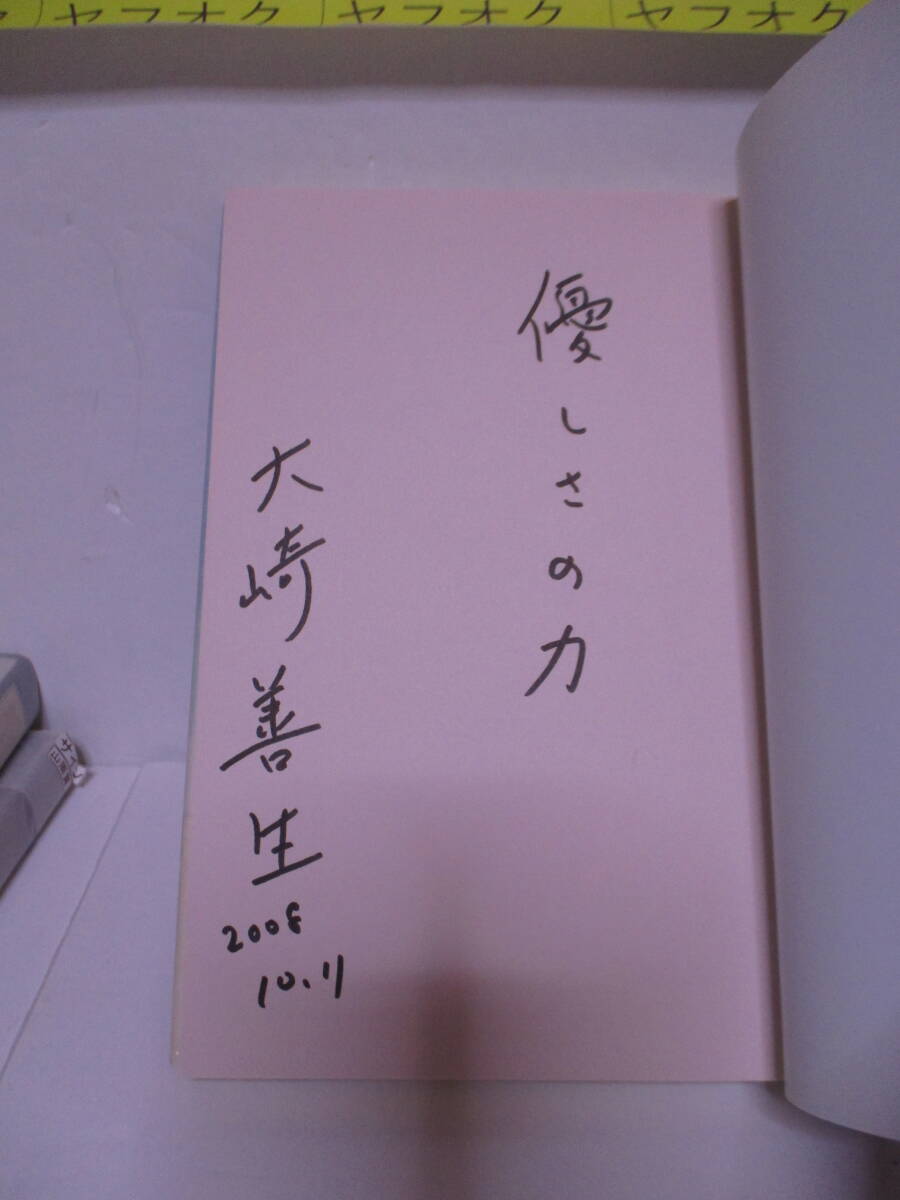 ヤフオク
ヤフオク
ヤフオク
優しさの力
大崎善生
2008
10.11
サイン